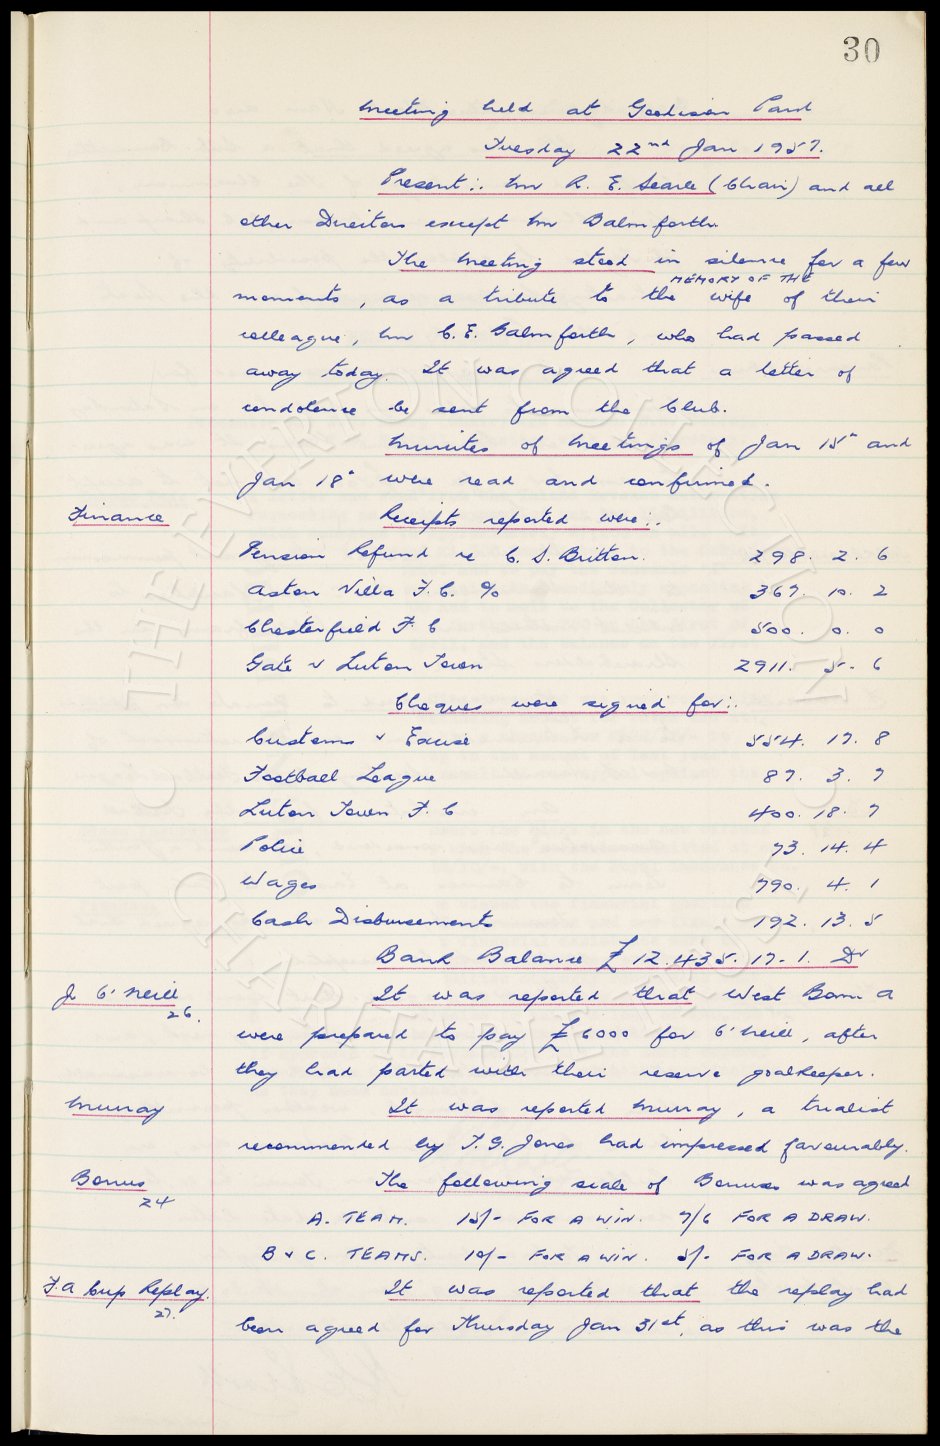 30
Meeting held at Goodison Park
Tuesday 22nd Jan 1957.
Present:. Mr R. E. Searle (Chair) and all
other Directors except Mr Balmforth.
The Meeting stood in silence for a few
MEMORY OF THE
moments, as a tribute to the wife of their
colleague, Mr C. E. Balmforth, who had passed
away today. It was agreed that a letter of
condolence be sent from the Club.
Minutes of Meetings of Jan 15" and
Jan 18" were read and confirmed.
Finance Receipts reported were:.
Pension Refund re C. S. Britton. 298. 2. 6
Aston Villa F. C. % 367. 10. 2
Chesterfield F. C 500. 0. 0
Gate v Luton Town 2911. 5. 6
Cheques were signed for:.
Customs & Excise 554. 17. 8
Football League 87. 3. 7
Luton Town F. C 400. 18. 7
Police 73. 14. 4
Wages 790. 4. 1
Cash Disbursements 192. 13. 5
Bank Balance £12.435. 17. 1. Dr
J O'Neill It was reported that West Bom A
26.
were prepared to pay £6000 for O'Neill, after
they had parted with their reserve goalkeeper.
Murray It was reported Murray, a trialist
recommended by T. G. Jones had impressed favourably.
Bonus The following scale of Bonuses was agreed
24
A. TEAM. 15/- FOR A WIN. 7/6 FOR A DRAW.
B & C. TEAMS. 10/- FOR A WIN. 5/- FOR A DRAW.
F.A Cup Replay. It was reported that the replay had
27.
been agreed for Thursday Jan 31st, as this was the
THE EVERTON COLLECTION
CHARITABLE TRUST